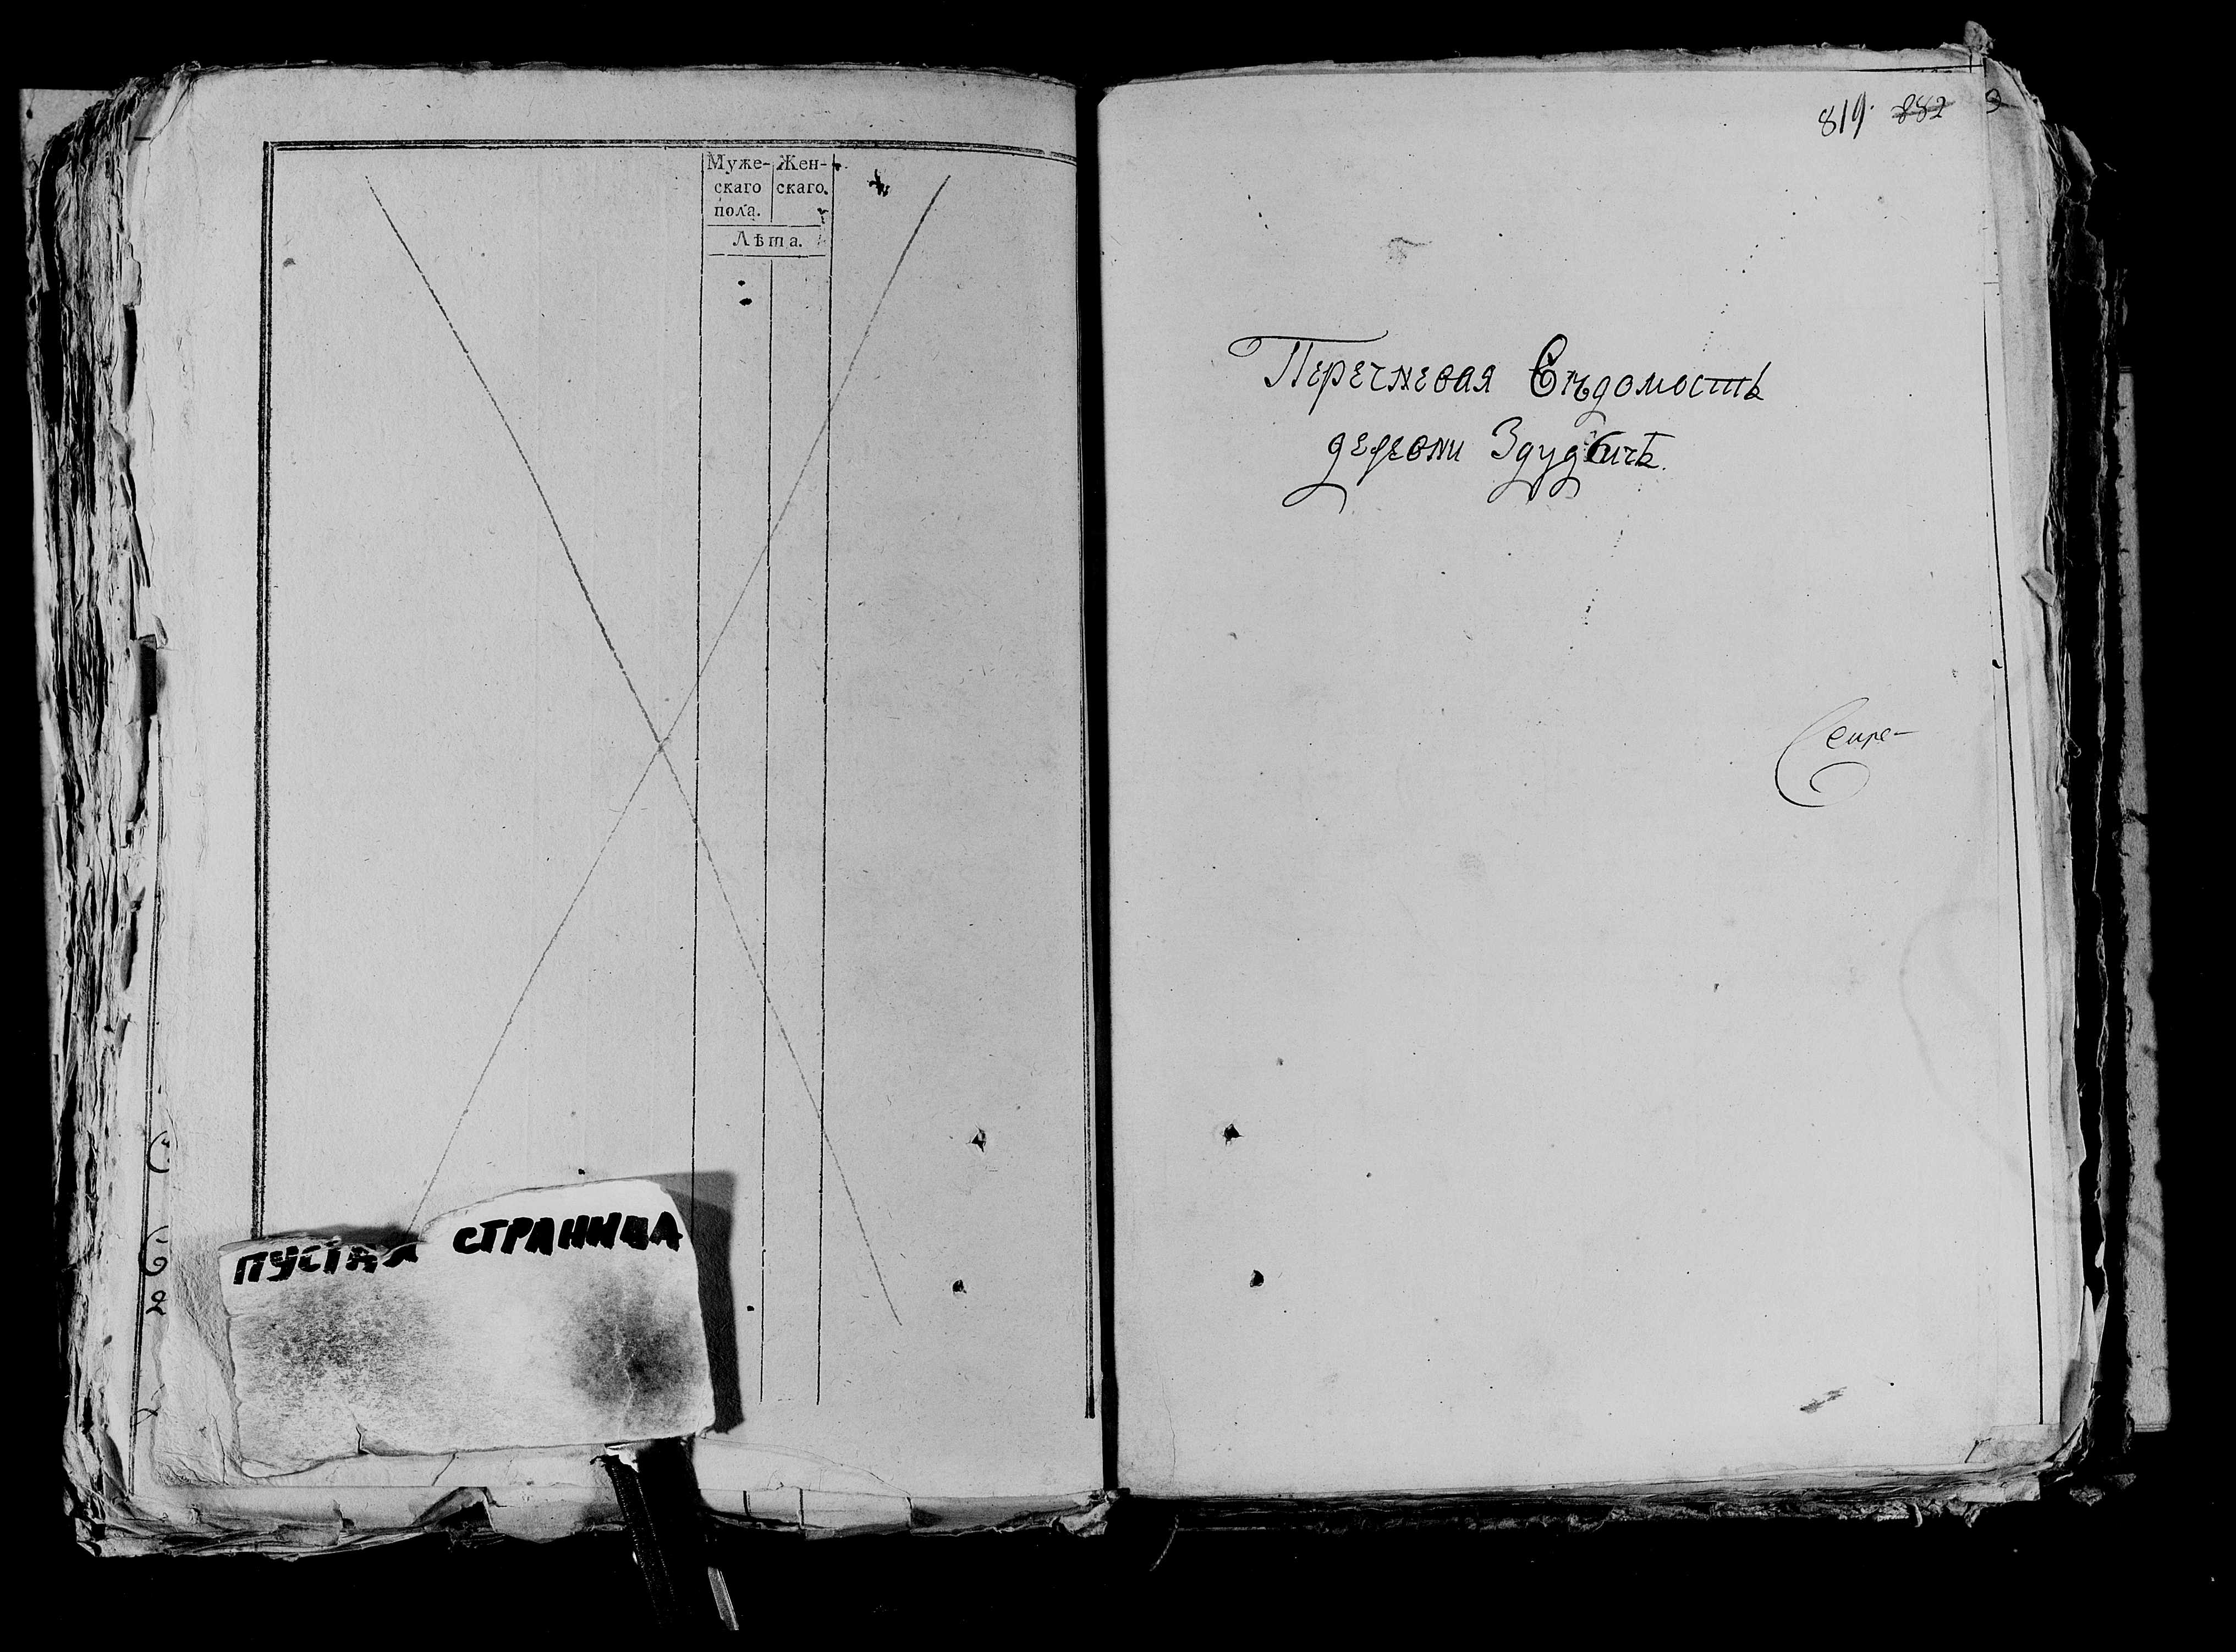 Муже- Жен-
скаго скаго.
пола.
Лѣта.
ПУСТАЯ СТРАНИЦА
819. 882
Перечневая Вѣдомость
деревни Здудичъ.
Секре-